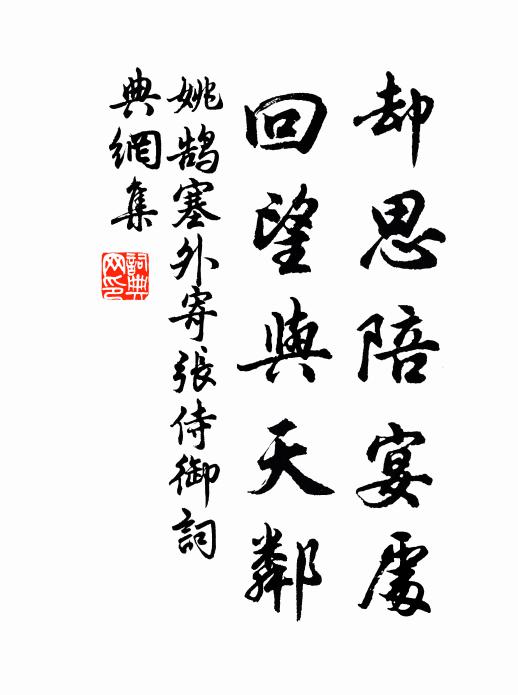 却思陪宴處
回望與天鄰
姚鵠塞外寄張侍御詞
典網集
詞典網印